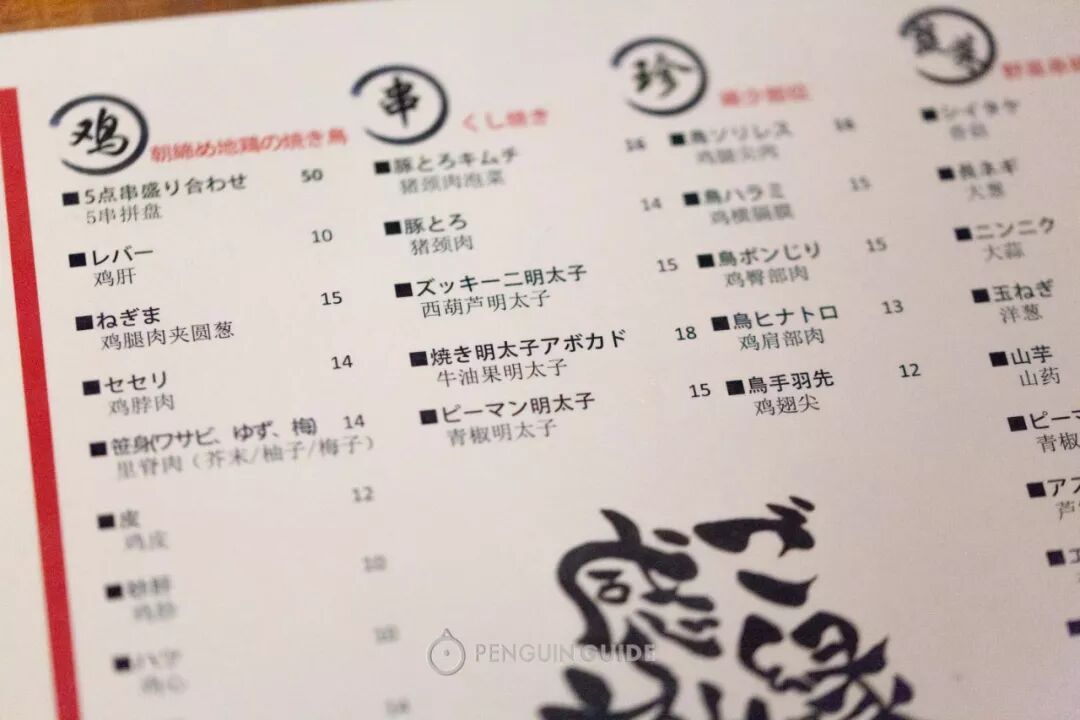 鸡
朝締め地鶏の焼き鳥
■5点串盛り合わせ 50
5串拼盘
■レバー 10
鸡肝
■ねぎま 15
鸡腿肉夹圆葱
■セセリ 14
鸡脖肉
■笹身(ワサビ、ゆず、梅) 14
里脊肉（芥末/柚子/梅子）
■皮 12
鸡皮
■砂肝 10
鸡胗
■ハツ 10
鸡心
串
くし焼き
■豚とろキムチ 16
猪颈肉泡菜
■豚とろ 14
猪颈肉
■ズッキーニ明太子 15
西葫芦明太子
■焼き明太子アボカド 18
牛油果明太子
■ピーマン明太子 15
青椒明太子
珍
■鳥ソリレス 16
鸡腿尖肉
■鳥ハラミ 15
鸡横膈膜
■鳥ボンじり 15
鸡臀部肉
■鳥ヒナトロ 13
鸡肩部肉
■鳥手羽先 12
鸡翅尖
■シイタケ
香菇
■長ネギ
大葱
■ニンニク
大蒜
■玉ねぎ
洋葱
■山芋
山药
■ピー
青椒
■アス
芦
■エ
PENGUIN GUIDE